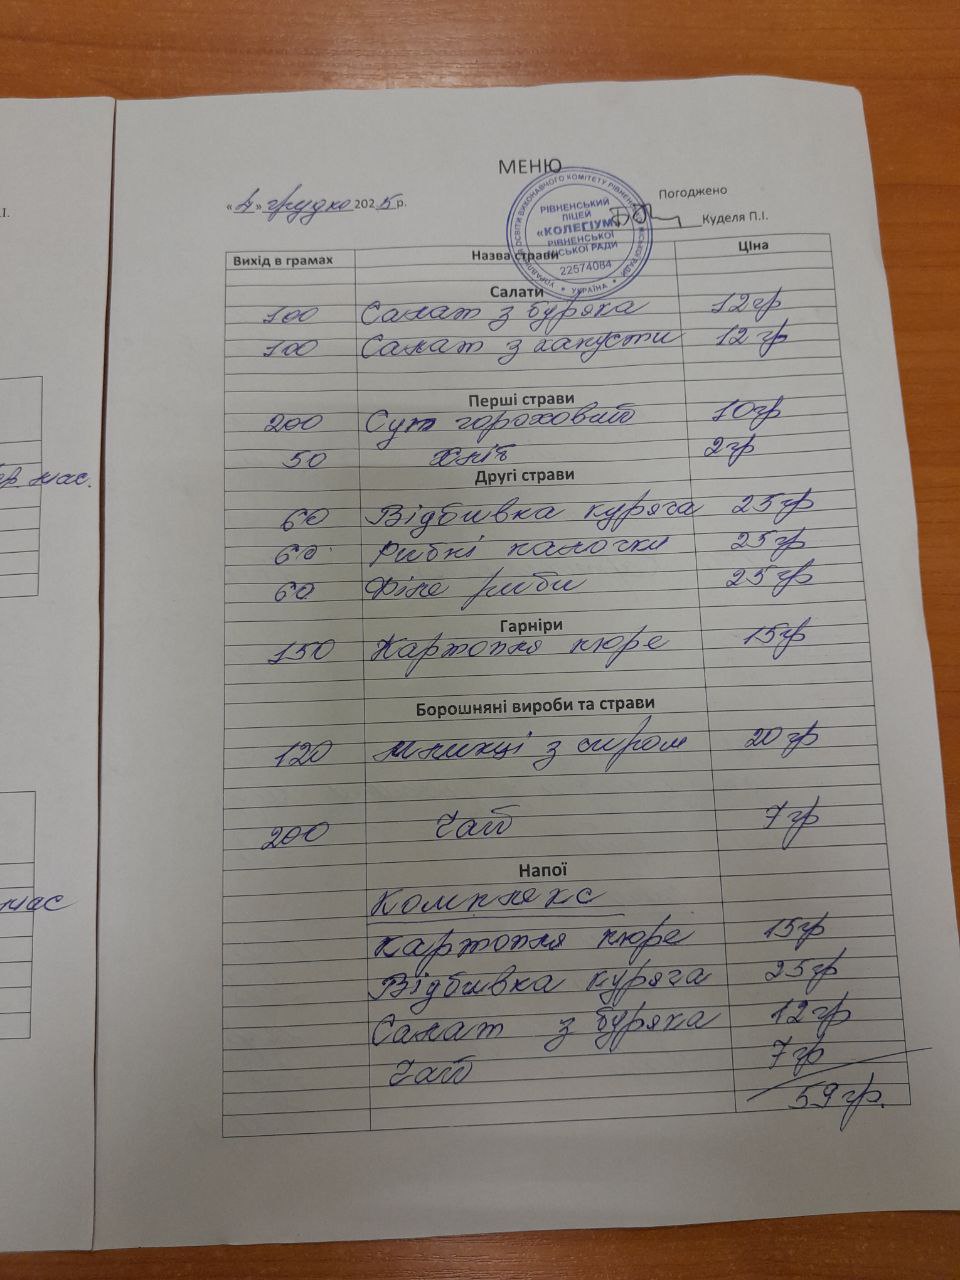 МЕНЮ
Погоджено
«4» грудня 2025р.
Куделя П.І.
УПРАВЛІННЯ ОСВІТИ ВИКОНАВЧОГО КОМІТЕТУ РІВНЕНСЬКОЇ МІСЬКОЇ РАДИ
РІВНЕНСЬКИЙ
ЛІЦЕЙ
«КОЛЕГІУМ»
РІВНЕНСЬКОЇ
МІСЬКОЇ РАДИ
22574084
УКРАЇНА
Вихід в грамах Назва страви Ціна
Салати
100 Салат з буряка 12гр
100 Салат з капусти 12гр
Перші страви
200 Суп гороховий 10гр
50 Хліб 2гр
Другі страви
60 Відбивка куряча 25гр
60 Рибні палочки 25гр
60 Філе риби 25гр
Гарніри
150 Картопля пюре 15гр
Борошняні вироби та страви
120 Млинці з сиром 20гр
200 Чай 7гр
Напої
Комплекс
Картопля пюре 15гр
Відбивка куряча 25гр
Салат з буряка 12гр
Чай 7гр
59гр.
.І.
мас.
мас